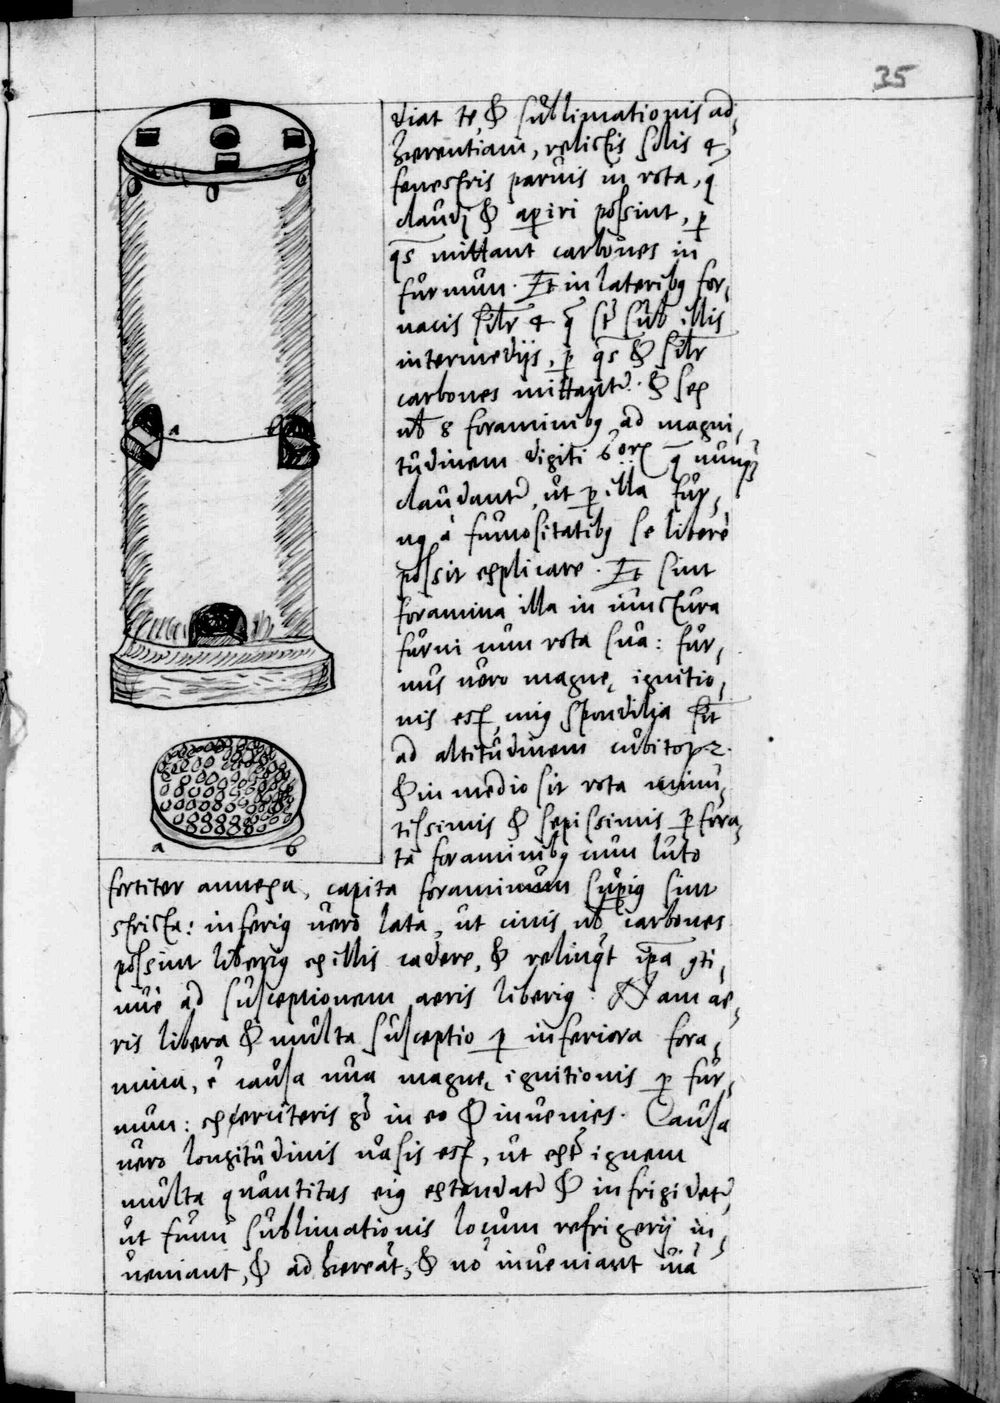 35
diat te, & sublimationis ad,
herentiam, relictis solis 4,
fenestris paruis in rota, q̃
claudj & aperiri possint, p
qs mittant carbones in
furnum. Et in lateribꝯ for,
nacis silr 4 q̃ st sub illis
intermedijs, p qs & silr
carbones mittant̃. & sep
ub 8 foraminibꝯ ad magni,
tudinem digiti q̃ nunqꝫ
claudant̃, ut p illa fur,
nꝯ à fumositatibꝯ se liberè
possit explicare. Et sint
foramina illa in iunctura
furni cum rota sua: fur,
nus uero magnę ignitio,
nis est, cuiꝯ spondilia sit
ad altitudinem cubitoꝝ.
& in medio sit rota minu,
tissimis & sepissimis pfora,
ta foraminibꝯ cum luto
a
b
a
b
fortiter annexa, capita foraminum supiꝯ sint
stricta: inferiꝯ uero lata, ut cinis ub carbones
possint liberiꝯ ex illis cadere, & relinqt ipa ꝯti,
nuè ad susceptionem aeris liberiꝯ. Nam ae,
ris libera & multa susceptio p inferiora fora,
mina, ẽ causa una magnę ignitionis p fur,
num: exerciteris gͦ in eo & inuenies. Causa
uero longitudinis uasis est, ut extͣ ignem
multa quantitas eiꝯ extendat̃ & infrigidet̃,
ut fumi sublimationis locum refrigerij in,
ueniant, & adhereãt, & nõ inueniant uiã